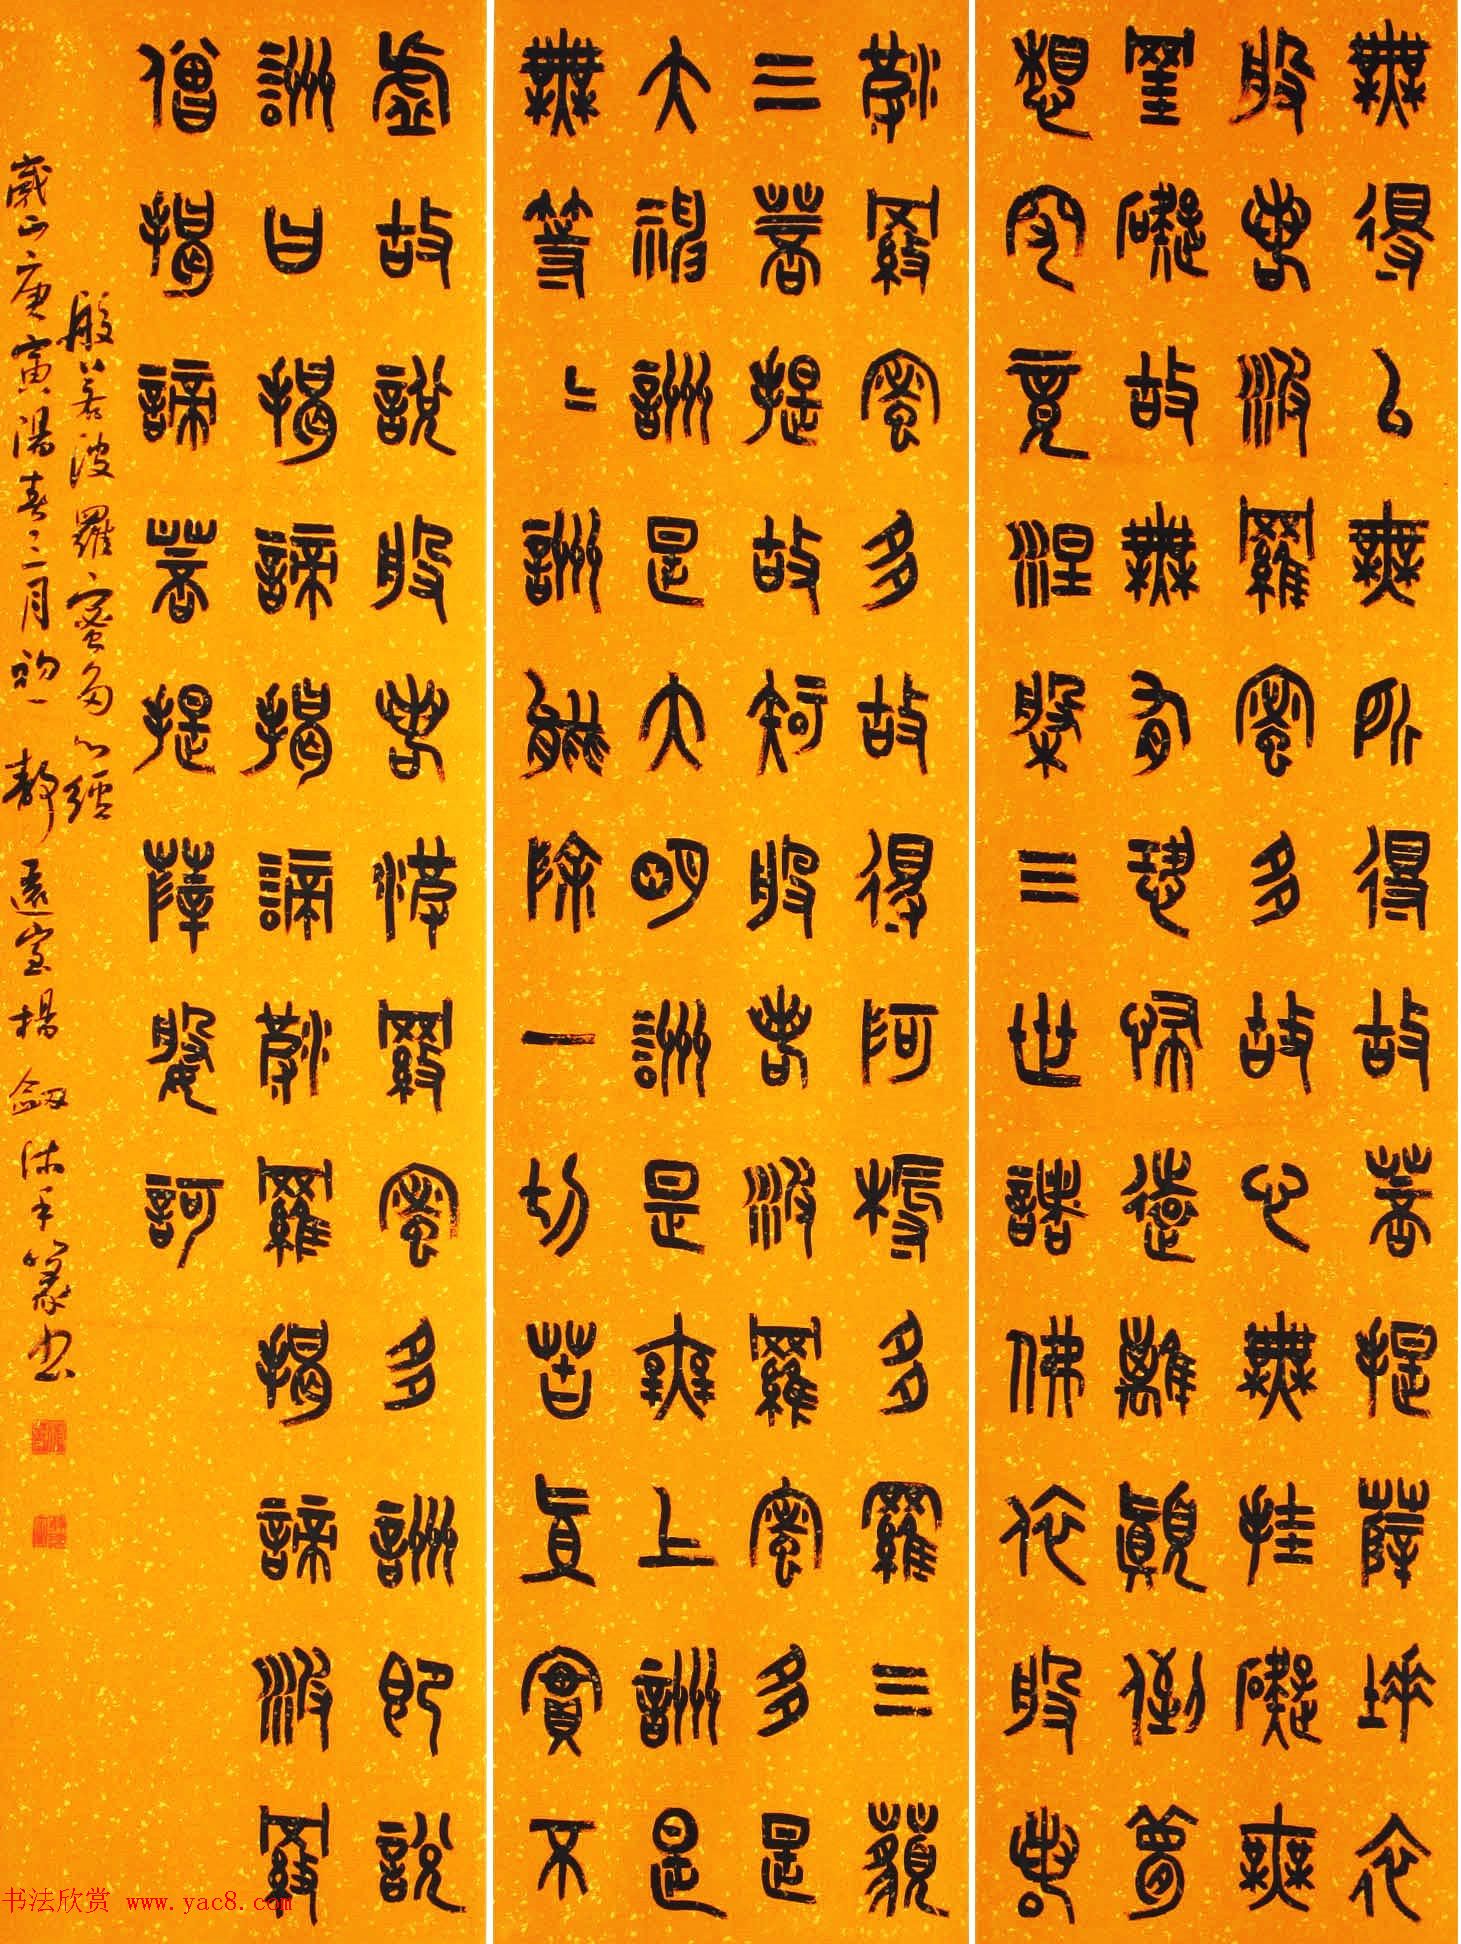 無得以無所得故菩提薩埵依
般若波羅蜜多故心無挂礙無
罣礙故無有恐怖遠離顛倒夢
想究竟涅槃三世諸佛依般若
波羅蜜多故得阿耨多羅三藐
三菩提故知般若波羅蜜多是
大神詶是大明詶是無上詶是
無等〻詶能除一切苦真實不
虛故說般若波羅蜜多詶即說
詶曰揭諦揭諦波羅揭諦波羅
僧揭諦菩提薩婆訶
般若波羅蜜多心經
歲 庚寅陽春三月初一 靜遠室楊劍沐手篆書
书法欣赏 www.yac8.com